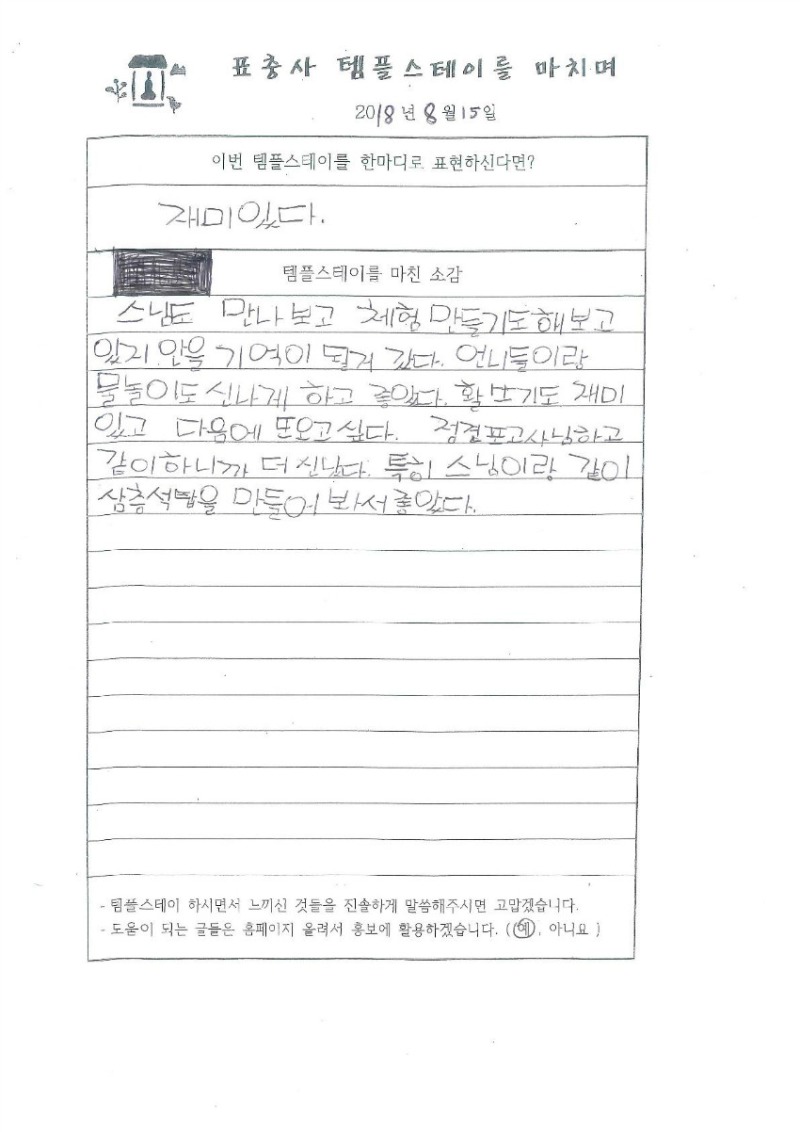 표충사 템플스테이를 마치며
2018년 8월 15일
이번 템플스테이를 한마디로 표현하신다면?
재미있다.
템플스테이를 마친 소감
스님도 만나보고 체험 만들기도해보고
있지 안을 기억이 될거 같다. 언니들이랑
물놀이도 신나게 하고 좋았다. 활 쏘기도 재미
있고 다음에 또오고싶다. 정결표고사님하고
같이하니까 더 신났다. 특히 스님이랑 같이
삼층석탑을 만들어 봐서좋았다.
- 템플스테이 하시면서 느끼신 것들을 진솔하게 말씀해주시면 고맙겠습니다.
- 도움이 되는 글들은 홈페이지 올려서 홍보에 활용하겠습니다. (예, 아니요 )